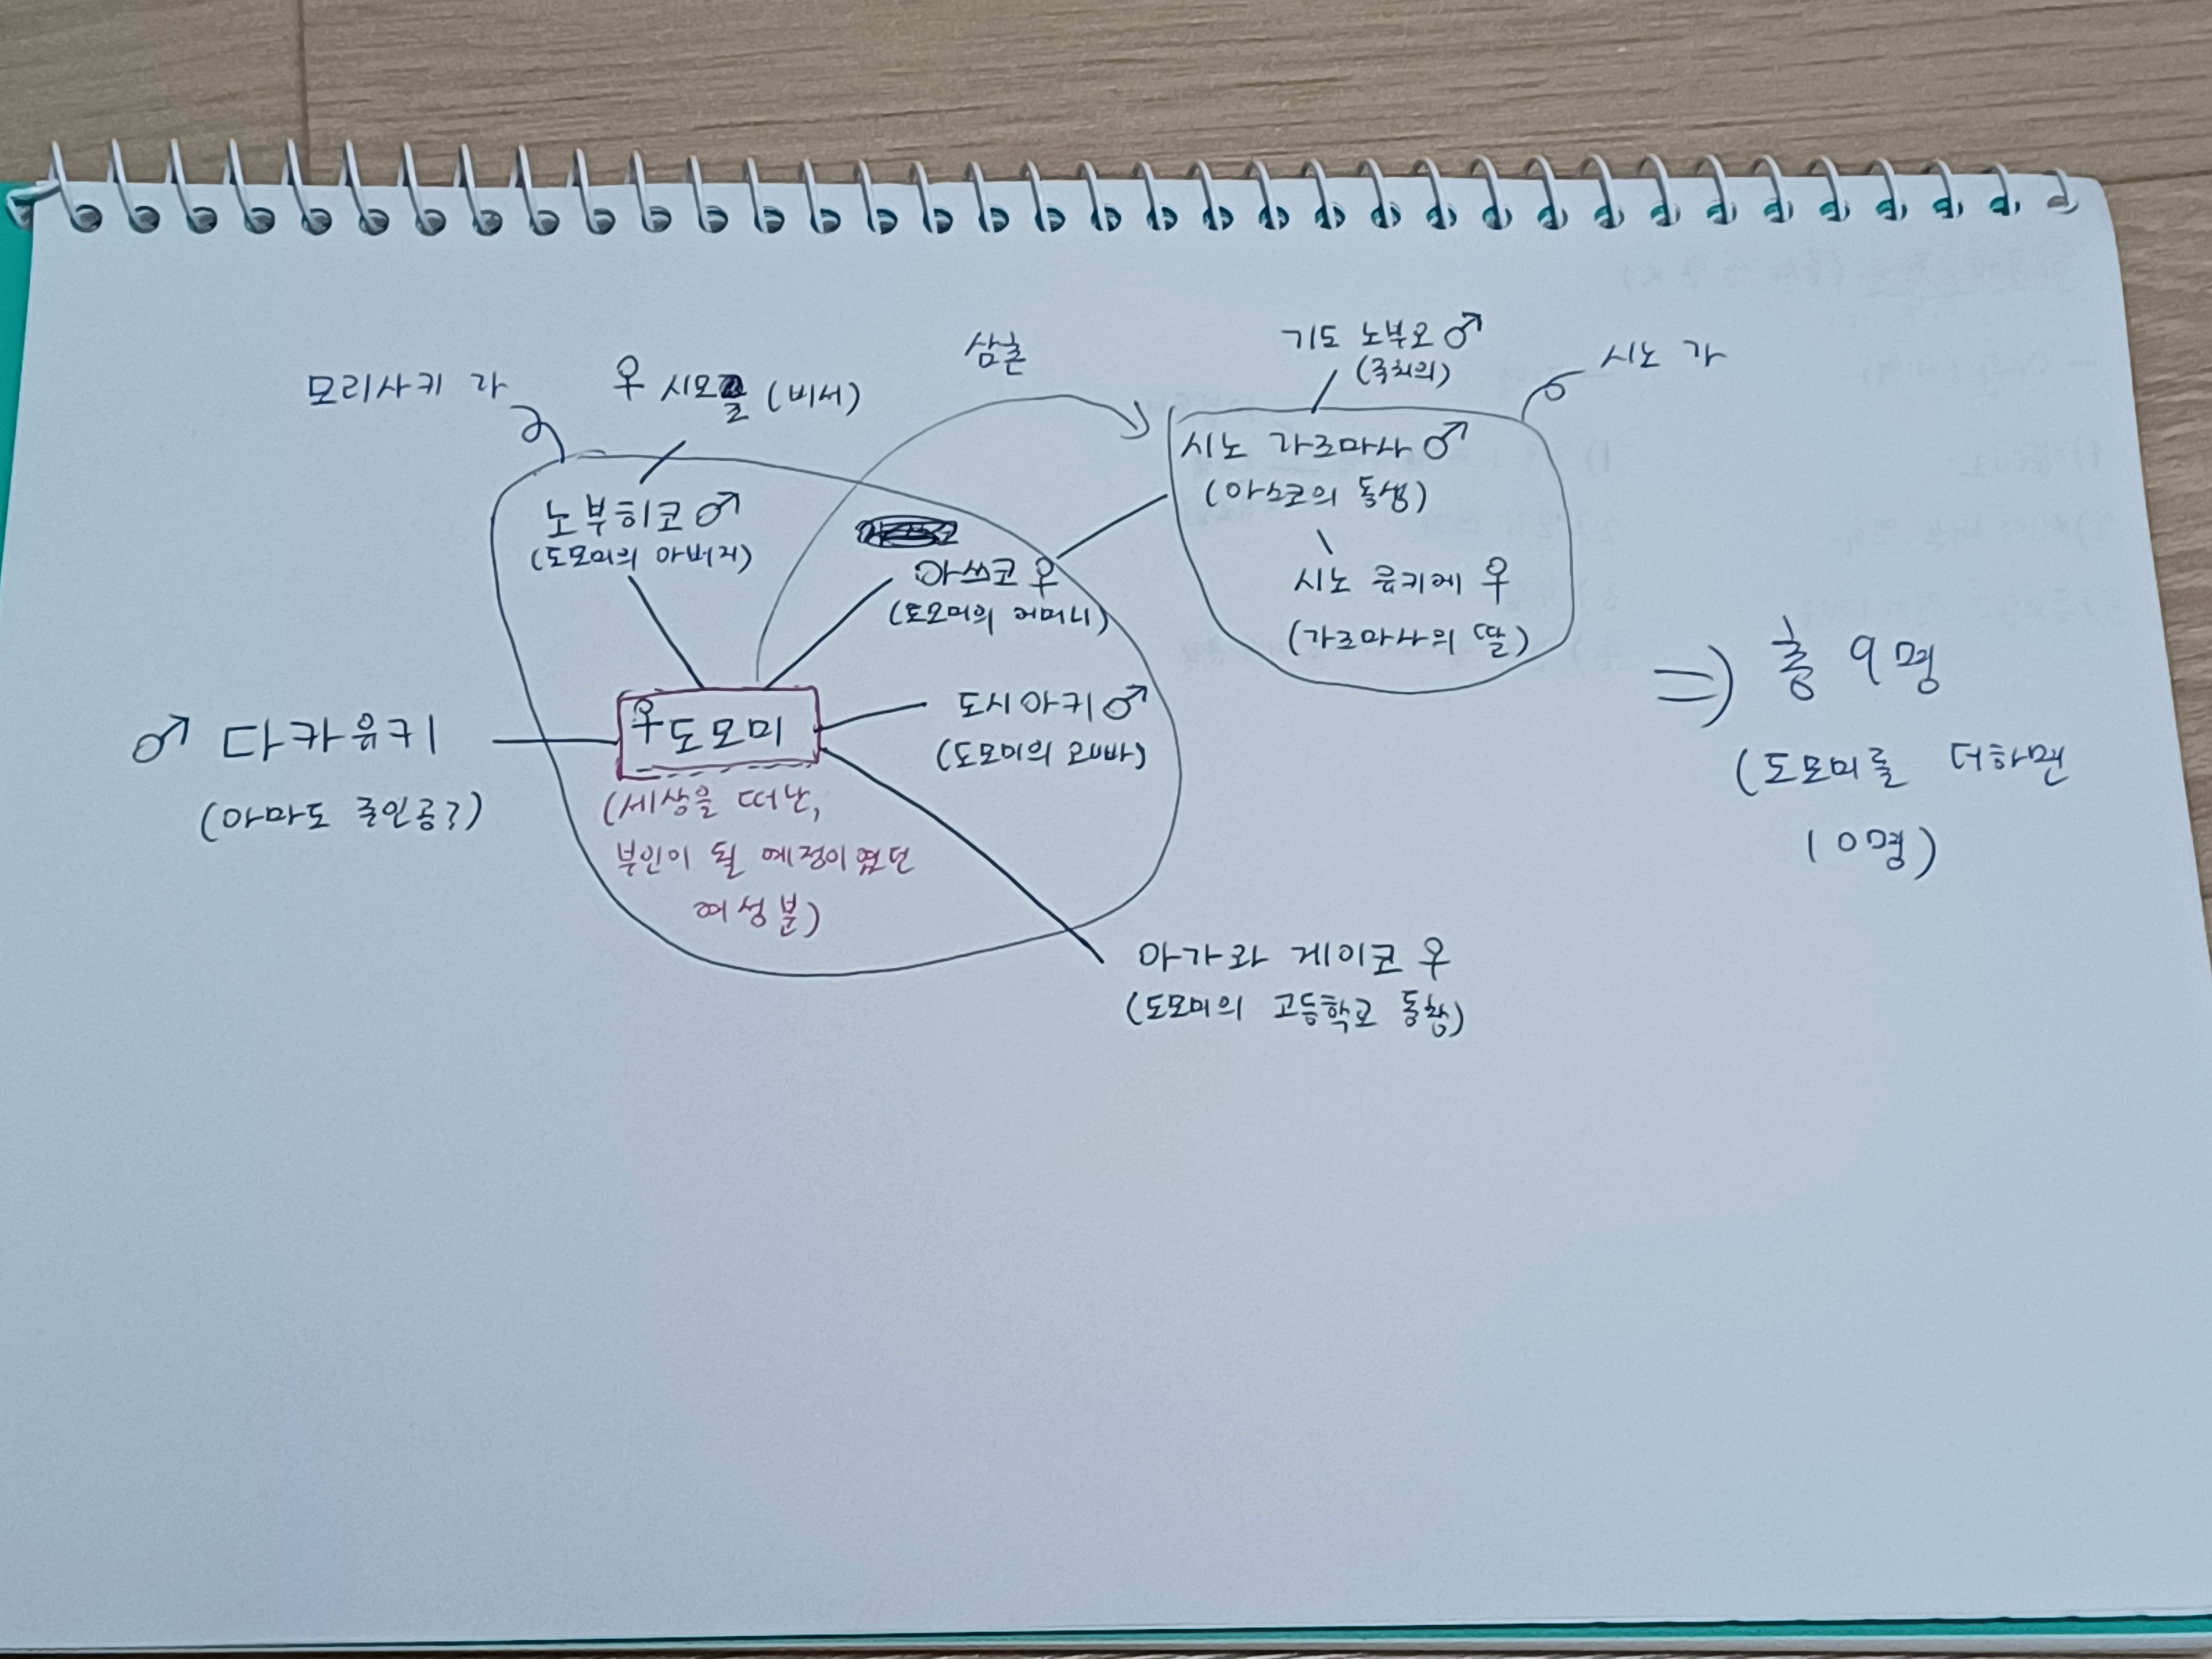 모리사키 가
♀ 시모죠 (비서)
삼촌
기도 노부오 ♂
(주치의)
시노 가
노부히코 ♂
(도모미의 아버지)
아쓰코 ♀
(도모미의 어머니)
시노 가즈마사 ♂
(아쓰코의 동생)
시노 유키에 ♀
(가즈마사의 딸)
♂ 다카유키
(아마도 주인공?)
♀도모미
(세상을 떠난,
부인이 될 예정이였던
여성분)
도시아키 ♂
(도모미의 오빠)
아가와 게이코 ♀
(도모미의 고등학교 동창)
=> 총 9명
(도모미를 더하면
10명)